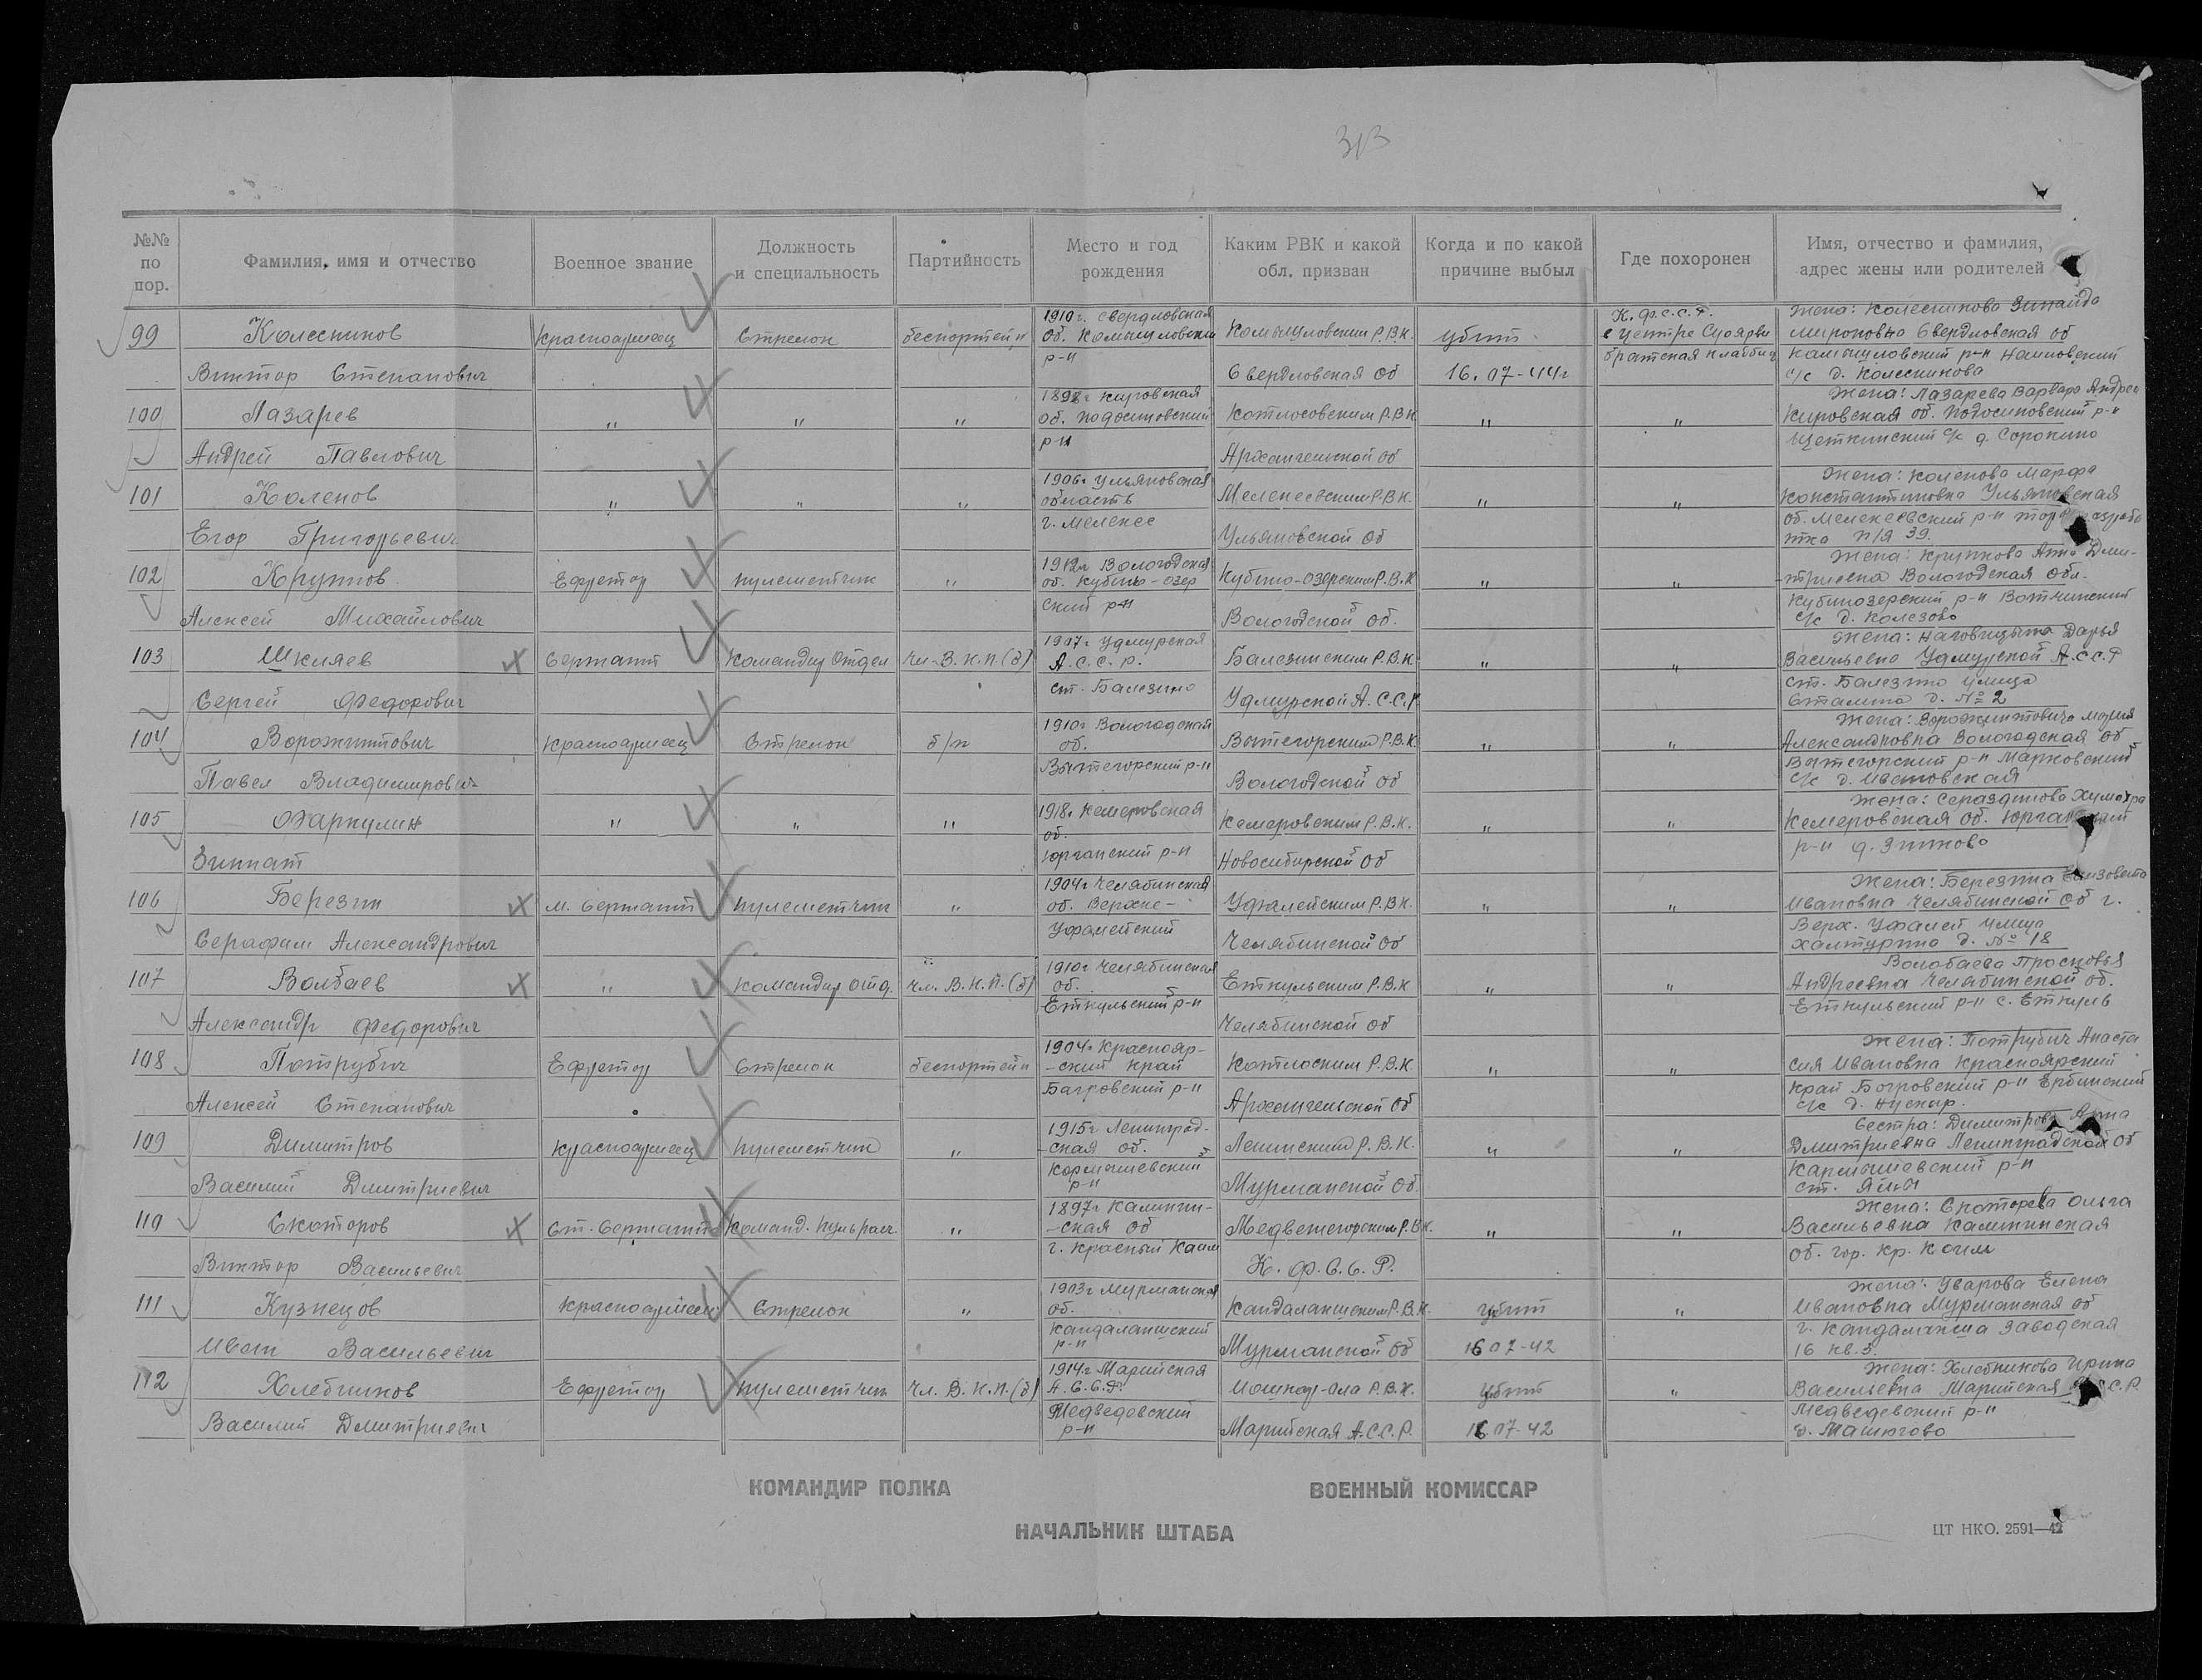 313
№№ по пор.
Фамилия, имя и отчество
Военное звание
Должность и специальность
Партийность
Место и год рождения
Каким РВК и какой обл. призван
Когда и по какой причине выбыл
Где похоронен
Имя, отчество и фамилия, адрес жены или родителей
99 Колесников Виктор Степанович
Красноармеец
Стрелок
беспартейн
1910г. Свердловская об. Камышловский р-н
Камышловским Р.В.К. Свердловская об
убит 16.07-44г
К.Ф.С.С.Р. в центре Суоярви братская кладбищ
Жена: Колесникова Зинаида Мироновна Свердловская об Камышловский р-н с/с д. Колесникова
100 Лазарев Андрей Павлович
" " "
1898г Кировская об. Подосиновский р-н
Котлосовским Р.В.К Архангельской об
" "
Жена: Лазарева Варвара Андрее Кировская об. Подосиновский р-н Щеткинский с/с д. Сорокино
101 Коленов Егор Григорьевич
" " "
1906г Ульяновская область г. Мелекес
Мелекесским Р.В.К. Ульяновской об
" "
Жена: Коленова Марфа Константиновна Ульяновская об. Мелекесский р-н п/я 39.
102 Крупнов Алексей Михайлович
Ефрейтор
пулеметчик
"
1912г Вологодская об. Кубино-озерский р-н
Кубино-озерским Р.В.К Вологодской об.
" "
Жена: Крупнова Анна Дмитриевна Вологодская обл. Кубинозерский р-н Вотчинский с/с д. Колезово
103 Шкляев Сергей Федорович
Сержант
Командир Отдел
Чл-В.К.П.(б)
1907г Удмурская А.С.С.Р. ст. Балезино
Балезинским Р.В.К Удмурской А.С.С.Р
" "
Жена: Наговицына Дарья Васильевна Удмурской А.С.С.Р ст. Балезино улица Сталина д. №2
104 Ворожитович Павел Владимирович
Красноармеец
Стрелок
б/п
1910г Вологодской об. Вытегорский р-н
Вытегорским Р.В.К. Вологодской об
" "
Жена: Ворожитовича Мария Александровна Вологодская об Вытегорский р-н Марковский с/с д. Ивановская
105 Фаркулин Зиннат
" " "
1918г Кемеровская об. Юрганский р-н
Кемеровским Р.В.К. Новосибирской об
" "
Жена: Сераздинова Кемеровская об. р-н д. Зимново
106 Березин Серафим Александрович
м. Сержант
пулеметчик
"
1904г Челябинская об. Верхне-Уфалейский
Уфалейским Р.В.К. Челябинской об
" "
Жена: Березина Елизовета Ивановна Челябинской об г. Верх. Уфалей улица Халтурина д. №18
107 Волбаев Александр Федорович
"
Командир отд.
Чл. В.К.П.(б)
1910г Челябинская об. Еткульский р-н
Еткульским Р.В.К Челябинской об
" "
Волобаева Просковья Андреевна Челябинской об. Еткульский р-н с. Еткуль
108 Потрубич Алексей Степанович
Ефрейтор
Стрелок
беспортейн
1904г Красноярский край Багровский р-н
Котлоским Р.В.К. Архангельской об
" "
Жена: Потрубич Анастасия Ивановна Красноярский край Богровский р-н Ербинский с/с д.
109 Димитров Василий Дмитриевич
Красноармеец
пулеметчик
"
1915г Ленинградская об. Кормышевский р-н
Ленинским Р.В.К. Мурманской об.
" "
Сестра: Димитрова Анна Дмитриевна Ленинградской об Кармышевский р-н ст.
110 Скоторов Виктор Васильевич
Ст. Сержант
Команд. пульрасч.
"
1897г Калининская об г. Красный Холм
Медвежегорским Р.В.К. К.Ф.С.С.Р.
" "
Жена: Скоторева Ольга Васильевна Калининская об. гор. Кр. Холм
111 Кузнецов Иван Васильевич
Красноармеец
Стрелок
"
1903г Мурманская об. Кандалакшский р-н
Кандалакшским Р.В.К. Мурманской об
убит 16 07-42
"
Жена: Уварова Елена Ивановна Мурманская об г. Кандалакша Заводская 16 кв.3.
112 Хлебников Василий Дмитриевич
Ефрейтор
пулеметчик
Чл. В.К.П.(б)
1914г Марийская А.С.С.Р. Медведевский р-н
Иошкар-Ола Р.В.К. Марийская А.С.С.Р.
убит 16 07-42
"
Жена: Хлебникова Ирина Васильевна Марийская С.Р. Медведевский р-н д.
КОМАНДИР ПОЛКА
ВОЕННЫЙ КОМИССАР
НАЧАЛЬНИК ШТАБА
ЦТ НКО. 2591—42